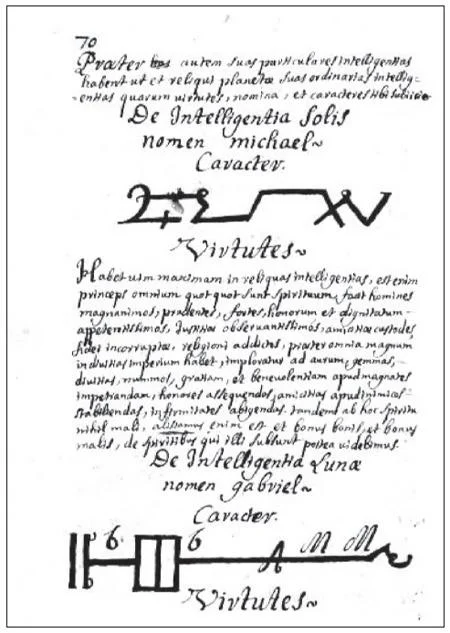 70
Præter hos autem suas particulares intelligentias
habent ut et reliqui planetæ suas ordinarias intellig-
entias quarum virtutes, nomina, et caracteres tibi subiicio
De Intelligentia Solis
nomen michael~
Caracter.
Virtutes~
Habet uim maximam in reliquas intelligentias, est enim
princeps omnium quot quot sunt spirituum, facit homines
magnanimos, prudentes, fortes, honorum et dignitatum-
appetentissimos, Justitiæ observantissimos, amicitiæ custodes,
fidei incorruptæ, religioni addictos, præter omnia magnum
in divitias imperium habet, imploratus ad aurum, gemmas,-
divitias, nummos, gratiam, et benevolentiam apud magnates
impetrandam, honores assequendos, amicitias apud inimicos-
stabiliendas, infirmitates abigendas tandem ab hoc spiritu
nihil mali, enim est et bonus bonis, et bonus
malis, de spiritibus qui illi subsunt postea uidebimus.
De Intelligentia Lunæ
nomen gabriel~
Caracter.
6 6 A M M
Virtutes~